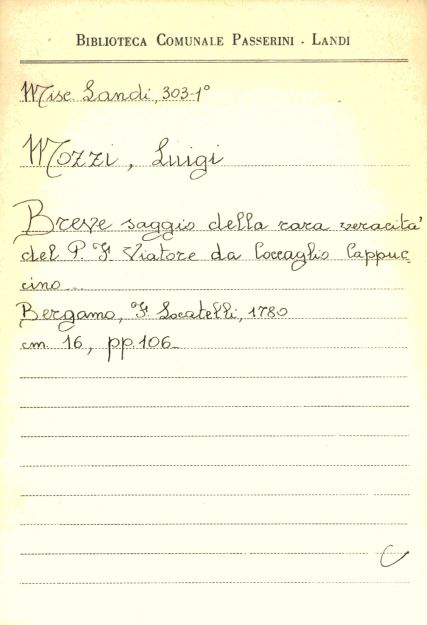 BIBLIOTECA COMUNALE PASSERINI - LANDI
Misc Landi, 303-1°
Mozzi, Luigi
Breve saggio della rara veracita'
del P. F. Viatore da Coccaglio Cappuc-
cino
Bergamo, F. Locatelli, 1780
cm. 16, pp. 106
C